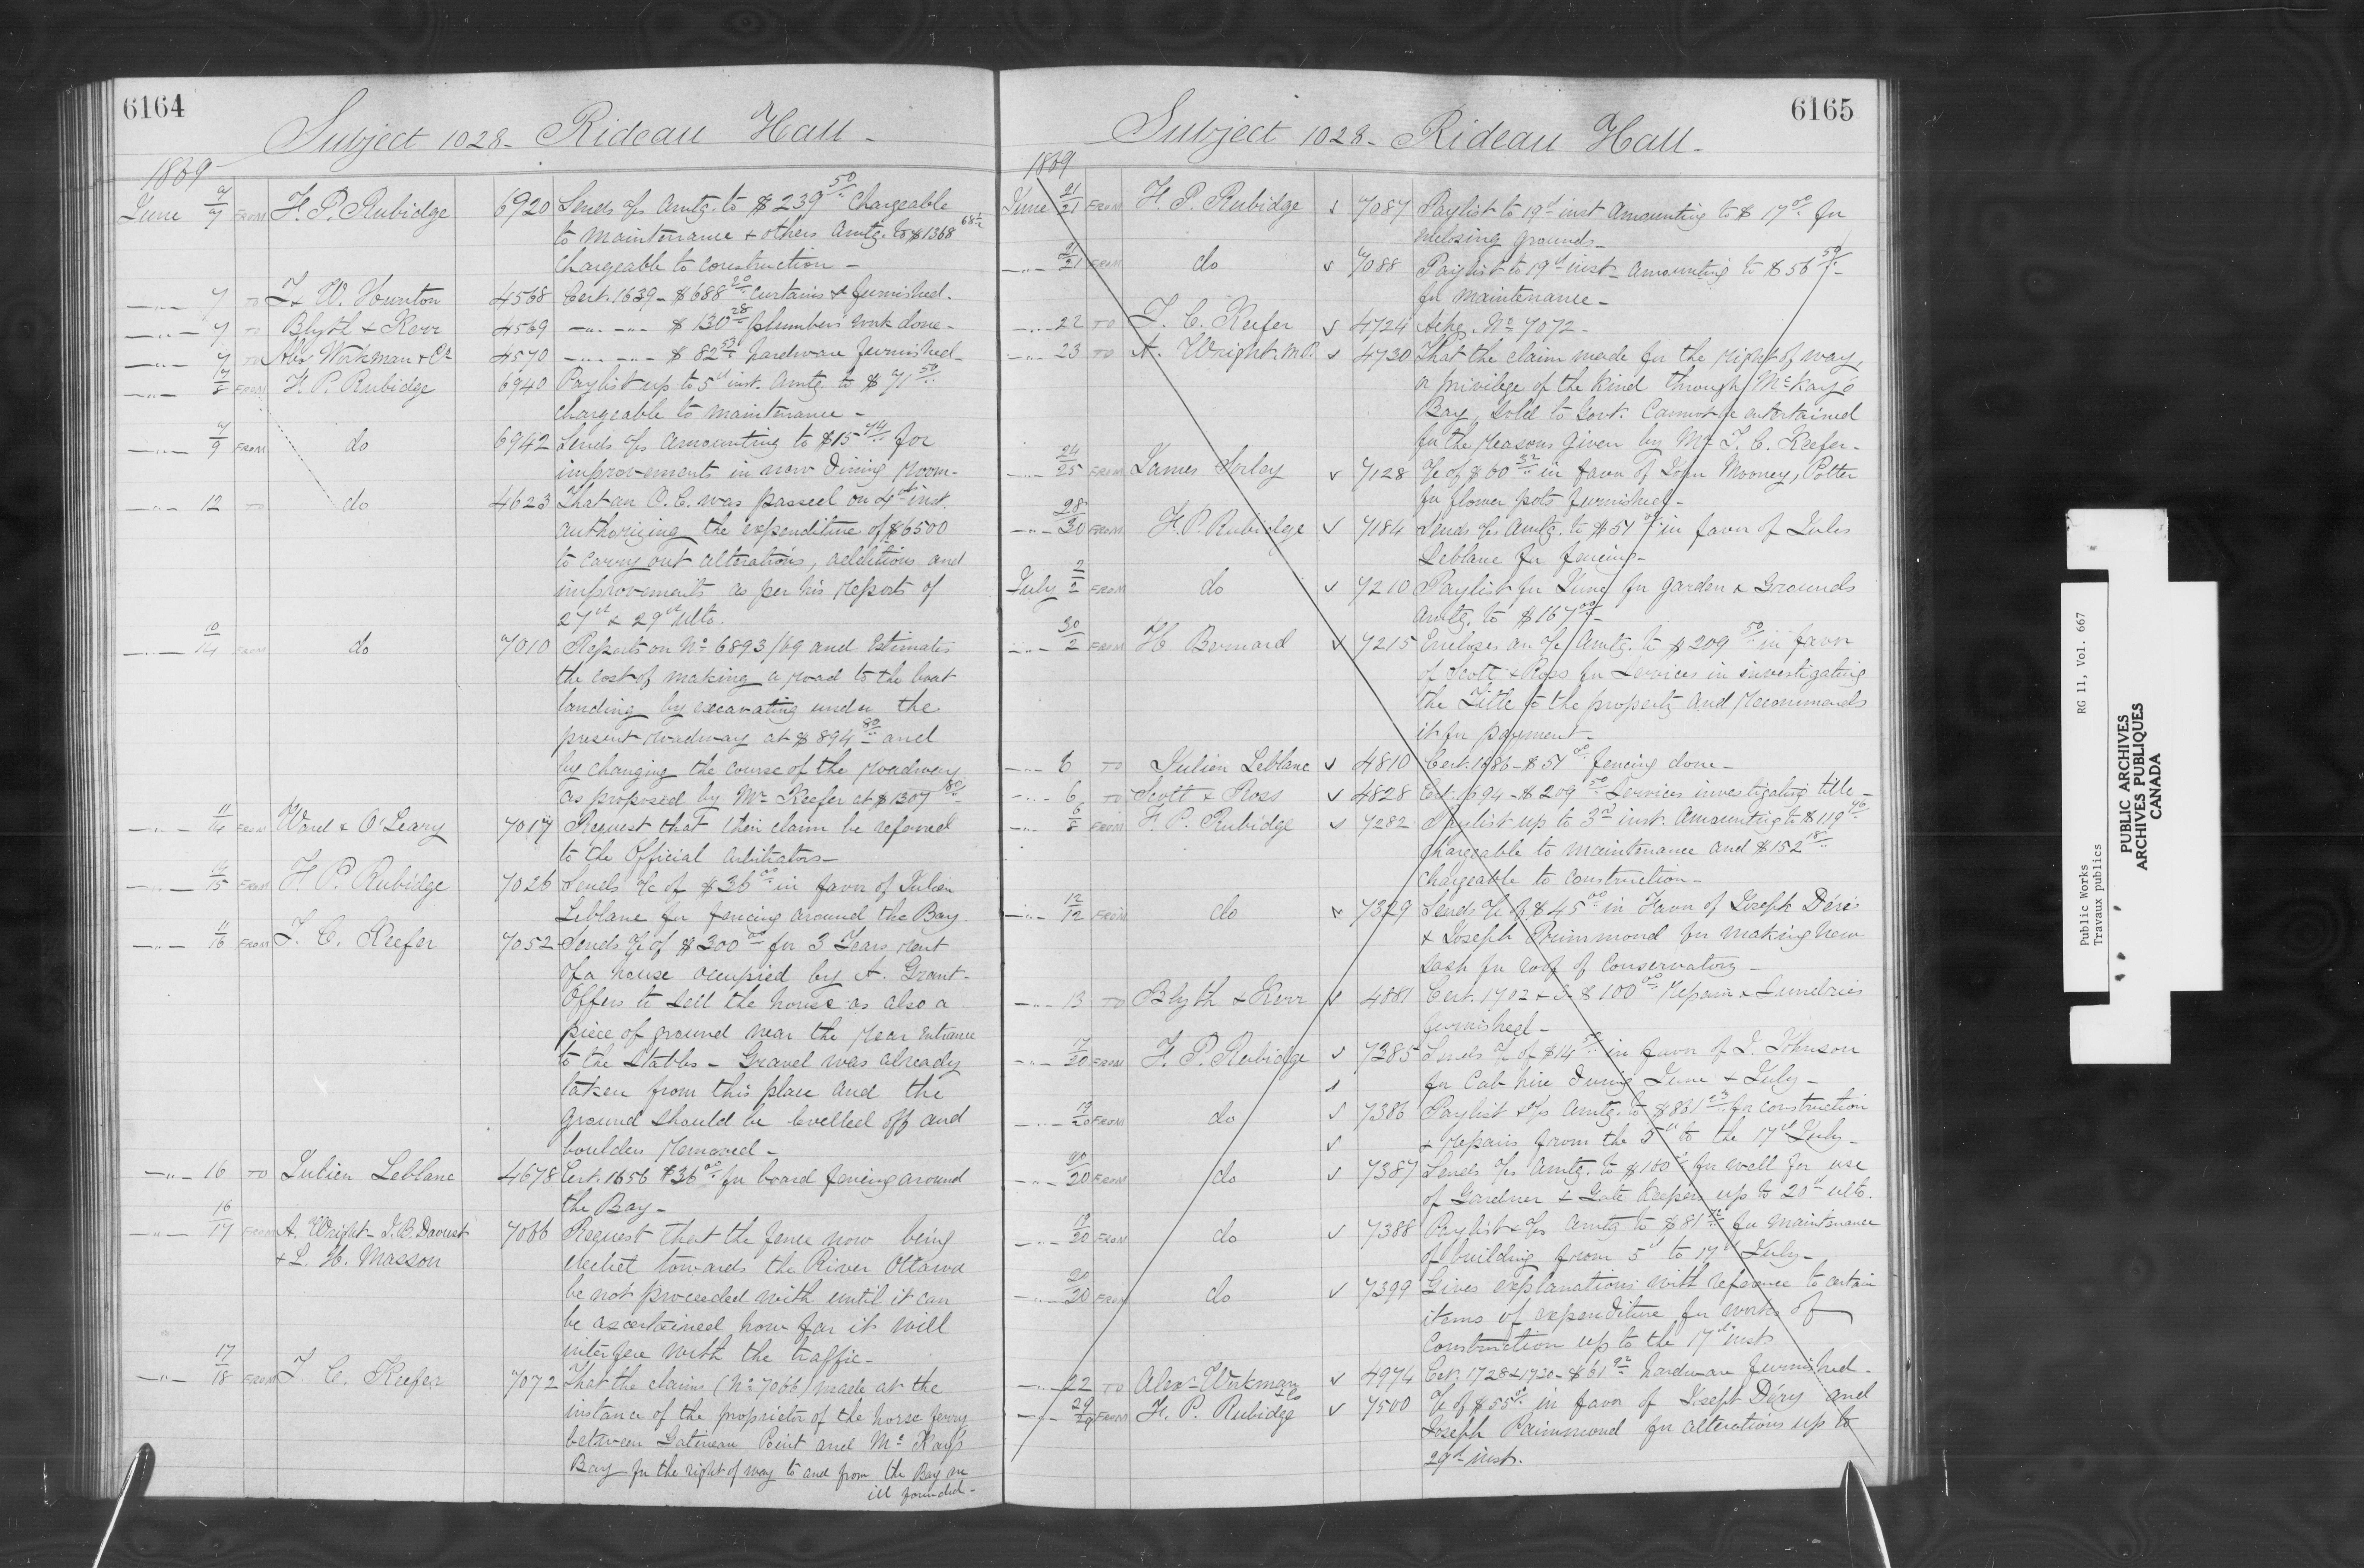 6164
Subject 1028 - Rideau Hall -
1869
June 7/7 FROM F. P. Rubidge 6920 Sends a/cs Amtg. to $239 50/.. Chargeable
to maintenance & others Amtg. to $1368 68/..
Chargeable to construction -
-"- 7 TO J. & W. Hunton 4568 Cert. 1639 - $688 20/.. Curtains &c furnished -
-"- 7 TO Blyth & Kerr 4569 -"- -"- $130 28/.. plumbers work done -
-"- 7 TO Alex Workman & Co 4570 -"- -"- $82 53/.. hardware furnished -
-"- 7/8 FROM F. P. Rubidge 6940 Paylist up to 5th inst. Amtg. to $71 50/..
chargeable to maintenance -
-"- 7/9 FROM do 6942 Sends a/cs Amounting to $15 74/.. for
improvements in new Dining Room -
-"- 12 TO do 4623 That an O. C. was passed on 4th inst.
authorizing the expenditure of $6500
to carry out alterations, additions and
improvements as per his Reports of
27th & 29th ulto.
-"- 10/14 FROM do 7010 Reports on No 6893/69 and Estimates
the cost of making a road to the boat
landing by excavating under the
present roadway at $894 80/.. and
by changing the course of the roadway
as proposed by Mr Keefer at $1307 80/..
-"- 11/14 FROM Ward & O'Leary 7017 Request that their claim be referred
to the Official Arbitrators -
-"- 15 FROM F. P. Rubidge 7026 Sends a/c of $36 00/.. in favor of Julien
Leblanc for fencing around the Bay
-"- 11/16 FROM T. C. Keefer 7052 Sends a/c of $300 00/.. for 3 Years rent
of a house occupied by A. Grant -
Offers to sell the house as also a
piece of ground near the rear entrance
to the Stables - Gravel was already
taken from this place and the
ground should be levelled off and
boulders removed -
-"- 16 TO Julien Leblanc 4678 Cert. 1656 $36 00/.. for board fencing around
the Bay -
-"- 16/17 FROM A. Wright - J. B. Daoust 7066 Request that the fence now being
& L. H. Masson erected towards the River Ottawa
be not proceeded with until it can
be ascertained how far it will
interfere with the traffic -
-"- 17/18 FROM T. C. Keefer 7072 That the claims (No 7066) made at the
instance of the proprietor of the horse ferry
between Gatineau Point and McKay's
Bay for the right of way to and from the Bay are
ill founded -
6165
Subject 1028 - Rideau Hall -
1869
June 21/21 FROM F. P. Rubidge 7087 Paylist to 19th inst Amounting to $17 00/.. for
enclosing grounds -
-"- 21/21 FROM do 7088 Paylist to 19th inst - Amounting to $56 50/.. -
for maintenance -
-"- 22 TO T. C. Keefer 4724 Ackg. No 7072 -
-"- 23 TO A. Wright M.P. 4730 That the claim made for the right of way,
or privilege of the kind through McKay's
Bay, sold to Govt. Cannot be entertained
for the reasons given by Mr T. C. Keefer -
-"- 24/25 FROM James Sorley 7128 a/c of $60 32/.. in favor of John Mooney, Potter
for flower pots furnished -
-"- 28/30 FROM F. P. Rubidge 7184 Sends a/cs Amtg. to $51 00/.. in favor of Jules
Leblanc for fencing -
July 2/2 FROM do 7210 Paylist for June for garden & Grounds
Amtg. to $167 00/.. -
-"- 30/2 FROM H. Bernard 7215 Encloses an a/c Amtg. to $209 50/.. in favor
of Scott & Ross for Services in investigating
the Title to the property and recommends
it for payment -
-"- 6 TO Julien Leblanc 4810 Cert. 1686 - $51 00/.. fencing done -
-"- 6 TO Scott & Ross 4828 Cert. 1694 - $209 50/.. Services investigating title -
-"- 6/8 FROM F. P. Rubidge 7282 Paylist up to 3rd inst. Amounting to $119 46/..
Chargeable to maintenance and $152 18/..
chargeable to construction -
-"- 12/12 FROM do 7329 Sends a/c of $45 00/.. in Favor of Joseph Déris
& Joseph Primmond for making New
sash for roof of Conservatory -
-"- 13 TO Blyth & Kerr 4881 Cert. 1702 & 3 - $100 00/.. Repairs & Sundries
furnished -
-"- 17/20 FROM F. P. Rubidge 7385 Sends a/c of $14 50/.. in favor of J. Johnson
for Cab hire During June & July -
-"- 19/20 FROM do 7386 Paylist & a/cs Amtg. to $861 23/.. for construction
& repairs from the 5th to the 17th July -
-"- 20/20 FROM do 7387 Sends a/cs Amtg. to $100 for well for use
of Gardner & Gate Keepers up to 20th ulto.
-"- 19/20 FROM do 7388 Paylist & a/cs Amtg to $81 for Maintenance
of building from 5th to 17th July -
-"- 20/20 FROM do 7399 Gives explanations with reference to certain
items of expenditure for works of
Construction up to the 17th inst
-"- 22 TO Alex Workman & Co 4974 Cert. 1728 & 1720 - $61 92/.. hardware furnished -
-"- 29/29 FROM F. P. Rubidge 7500 a/c of $55 00/.. in favor of Joseph Déry and
Joseph Primmond for alterations up to
29th inst.
Public Works RG 11, Vol. 667
Travaux publics
PUBLIC ARCHIVES
ARCHIVES PUBLIQUES
CANADA